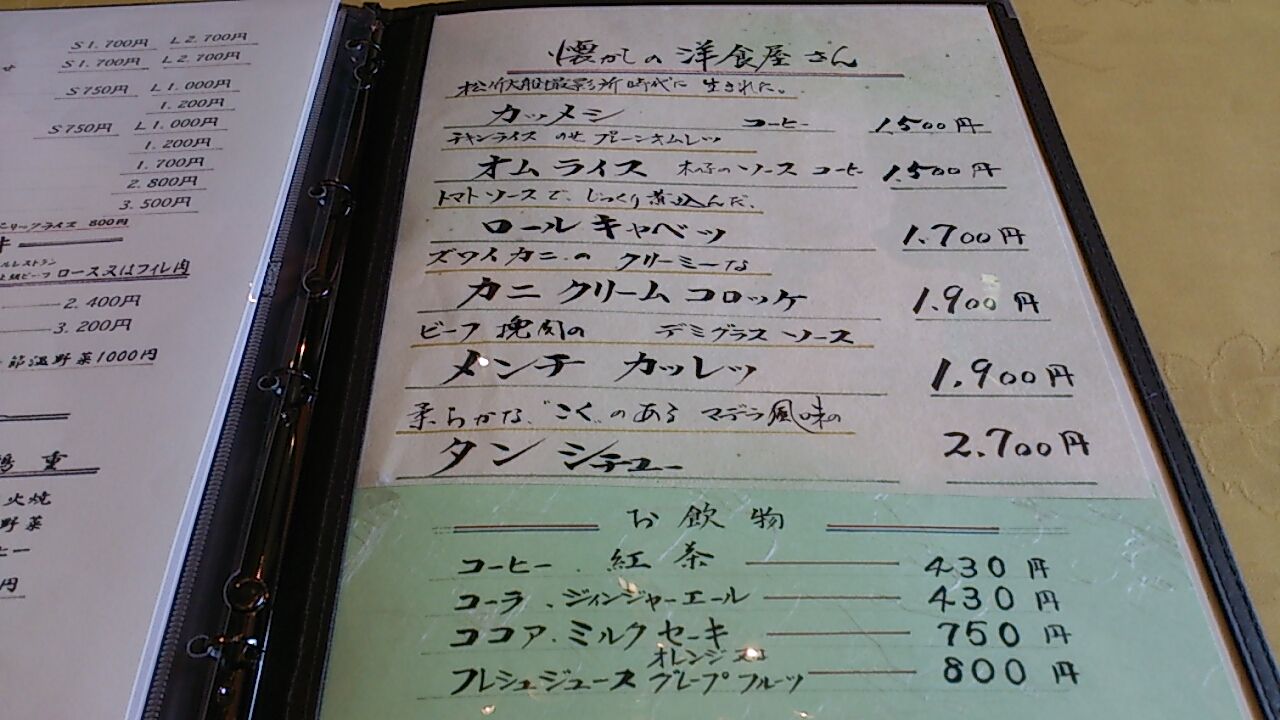 S1.700円 L2.700円
S1.700円 L2.700円
S750円 L1.000円
1.200円
S750円 L1.000円
1.200円
1.700円
2.800円
3.500円
ーリックライス 800円
ルレストラン
ビーフ ロース又はフィレ肉
2.400円
3.200円
節温野菜1000円
重
火焼
野菜
ヒー
円
懐かしの 洋食屋さん
松竹大船撮影所時代に 生まれた。
カツメシ コーヒー 1.500円
チキンライス のせ プレーンオムレツ
オムライス きのこのソース コーヒー 1.500円
トマトソースで、じっくり煮込んだ、
ロールキャベツ 1.700円
ズワイカニの クリーミーな
カニ クリーム コロッケ 1.900円
ビーフ 挽肉の デミグラス ソース
メンチ カツレツ 1.900円
柔らかな、"こく"のある マデラ風味の
タン シチュー 2.700円
お飲物
コーヒー . 紅茶 430円
コーラ . ジィンジャーエール 430円
ココア . ミルクセーキ 750円
フレシュジュース オレンジ グレープフルーツ 800円